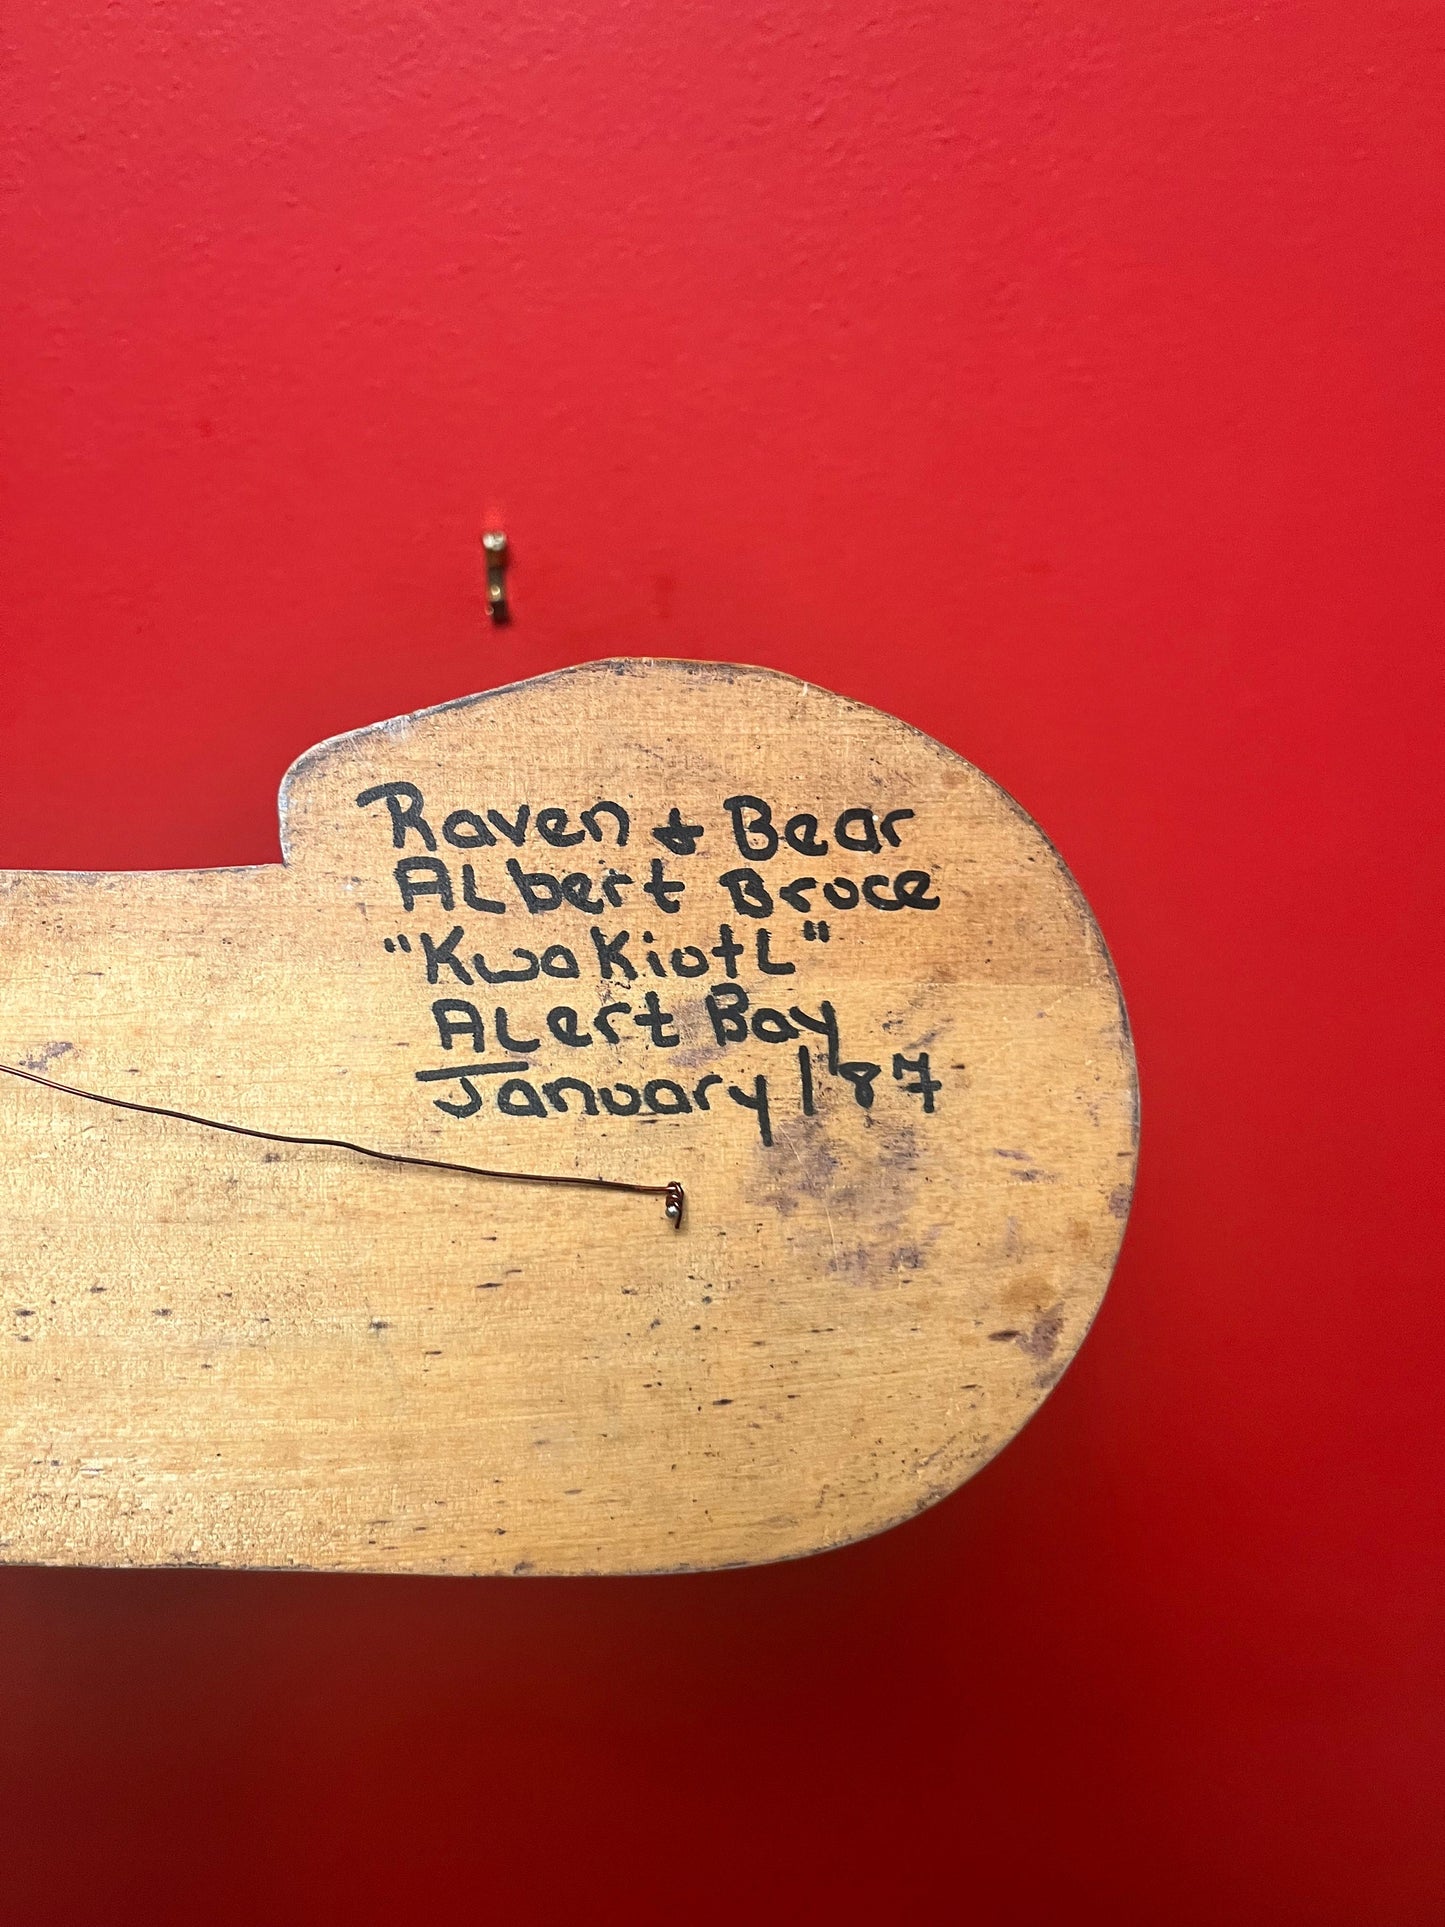 Raven & Bear
ALbert Bruce
"KwaKiutL"
ALert Bay
January/87